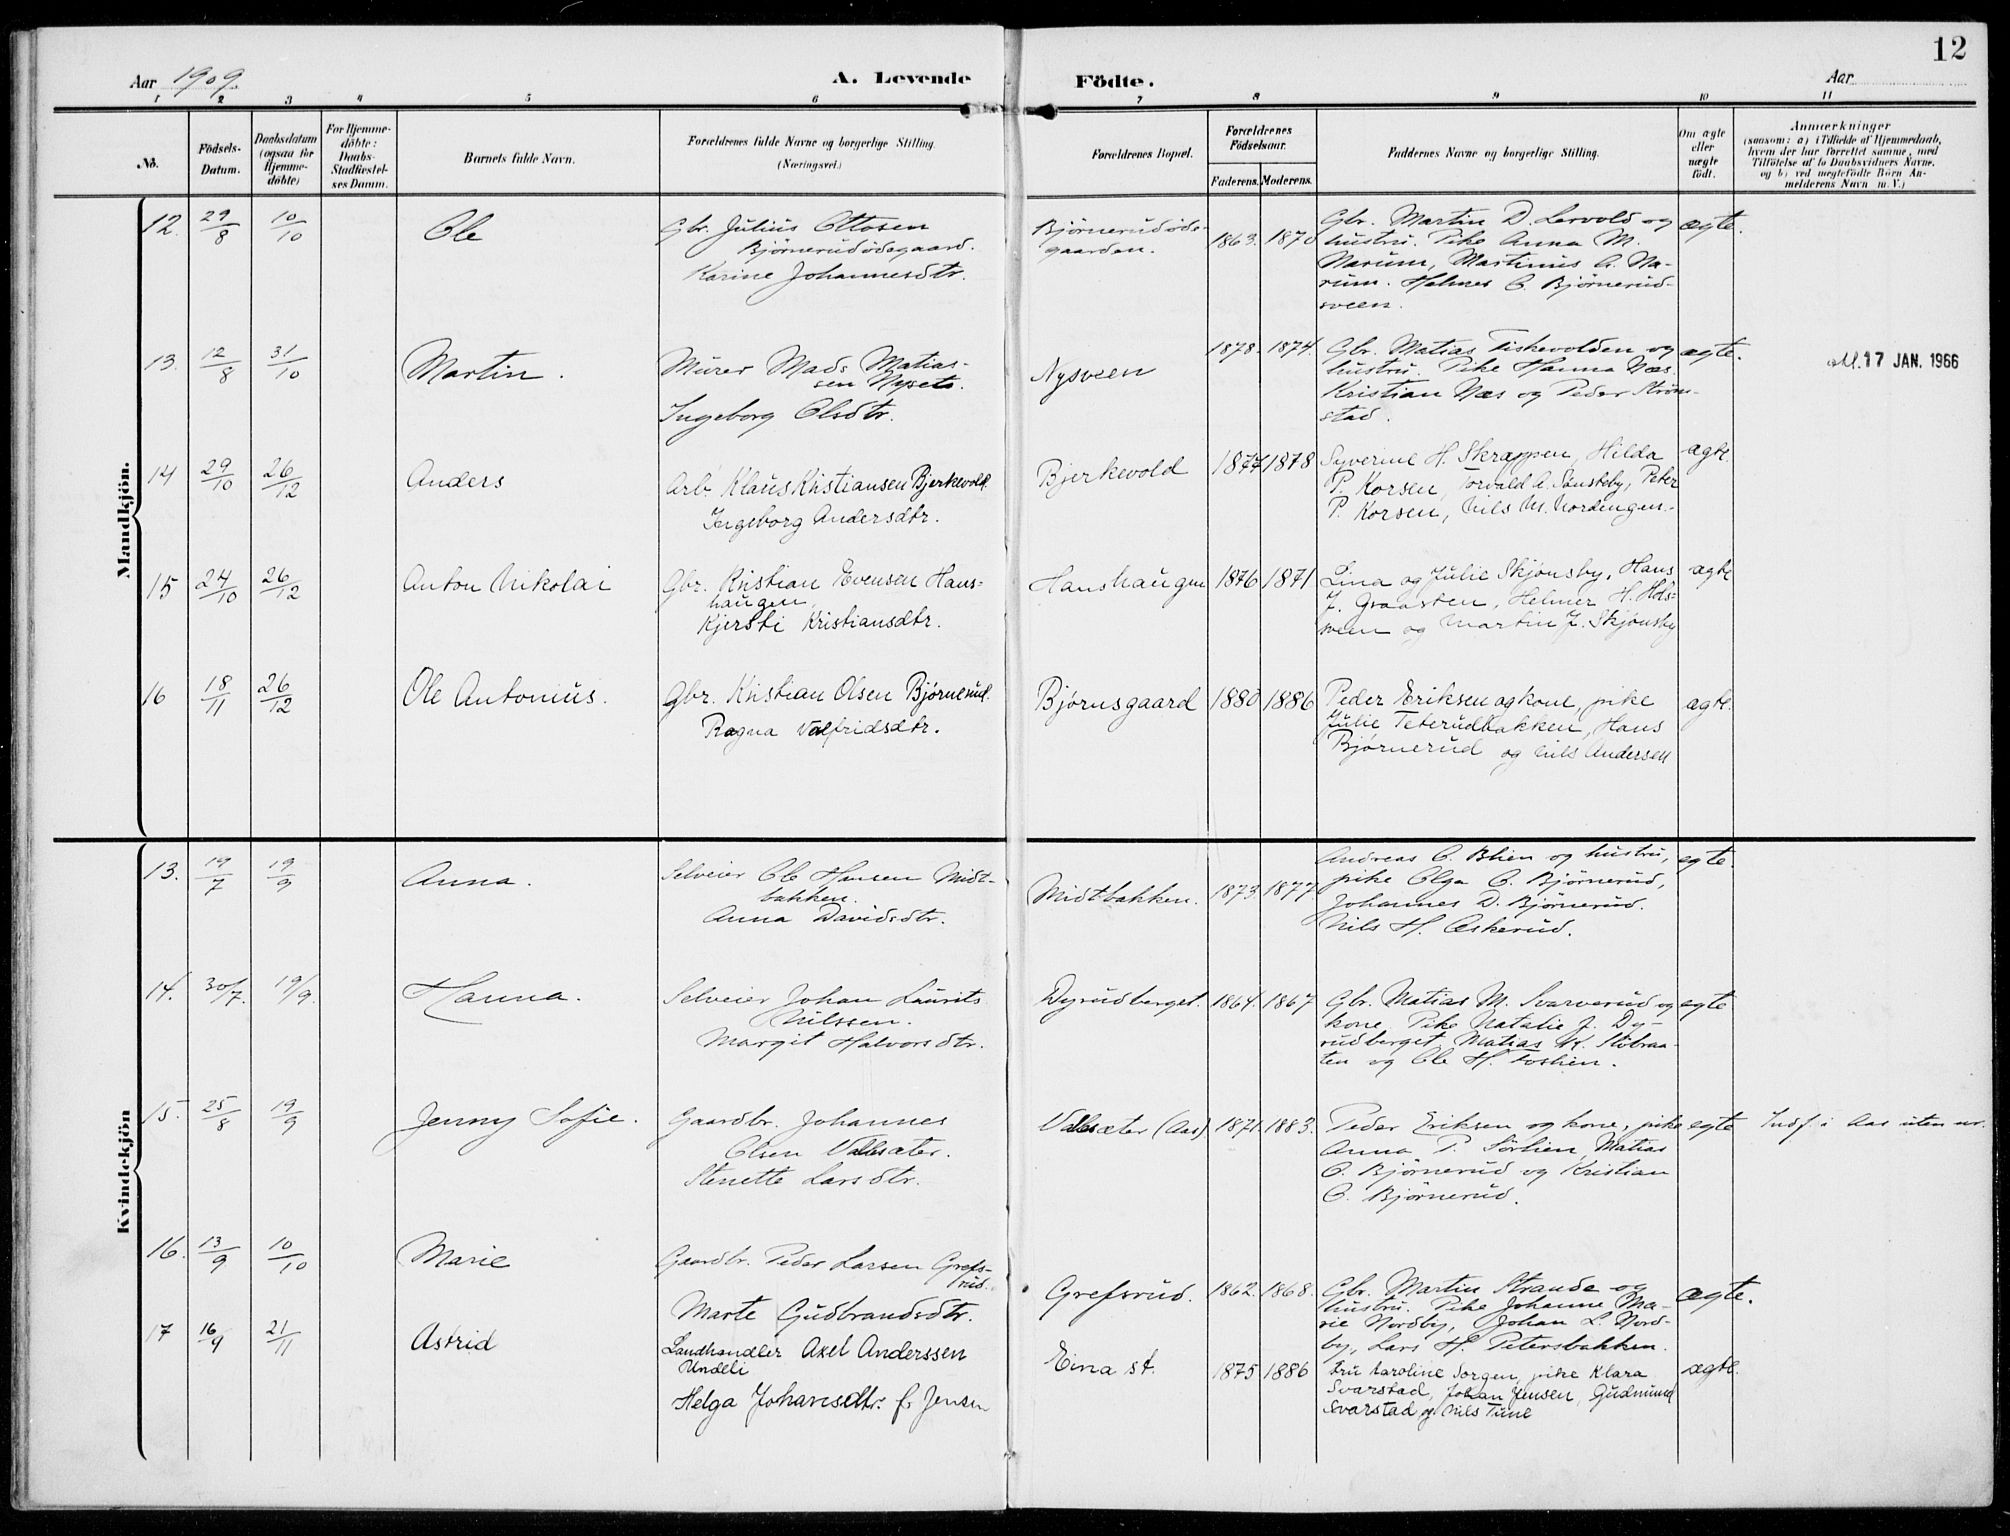 12
Aar 1909.
A. Levende Födte.
Aar
1 2 3 4 5 6 7 8 9 10 11
No.
Födsels-Datum.
Daabsdatum (ogsaa for Hjemme-döbte)
For Hjemme-döbte: Daabs-Stadfæstel-ses Datum.
Barnets fulde Navn.
Forældrenes fulde Navne og borgerlige Stilling. (Næringsvei.)
Forældrenes Bopæl.
Forældrenes Födselsaar.
Faderens. Moderens.
Faddernes Navne og borgerlige Stilling.
Om ægte eller uægte födt.
Anmærkninger
(saasom: a) i Tilfælde af Hjemmedaab,
hvem der har forrettet samme, med
Tilföielse af to Daabsvidners Navne,
og b) ved uægtefödte Börn An-
melderens Navn m. V.)
Mandkjön.
12. 29/8 10/10 Ole
Gbr. Julius Ottosen
Bjørnerudødegaard.
Karine Johannesdtr.
Bjørnerudøde-
gaarden.
1863. 1870
Gbr. Martin D. Lervold og
hustru. Pike Anna M.
Narum, Martinus A. Na-
rum. Helmer O. Bjørnerud-
sveen.
ægte.
13. 12/8 31/10 Martin.
Murer Mads Matias-
sen Nyseth.
Ingeborg Olsdtr.
Nysveen
1878. 1874.
Gbr. Matias Fiskevolden og
hustru. Pike Hanna Næs
Kristian Næs og Peder Strøm-
stad.
ægte.
17 JAN. 1966
14 29/10 26/12 Anders
Arb. Klaus Kristiansen Bjerkevold.
Ingeborg Andersdtr.
Bjerkevold
1877 1878
Syverine H. Skrappen, Hilda
P. Korsen, Torvald A. Sønsteby, Peter
P. Korsen, Nils M. Nordengen.
ægte.
15 24/10 26/12 Anton Nikolai
Gbr. Kristian Evensen Hans-
haugen,
Kjersti Kristiansdtr.
Hanshaugen
1876 1871
Lina og Julie Skjønsby, Hans
J. Graasten, Helmer H. Hols-
veen og Martin J. Skjønsby
ægte
16 18/11 26/12 Ole Antonius.
Gbr. Kristian Olsen Bjørnerud.
Ragna Valfridsdtr.
Bjørnsgaard
1880 1886
Peder Eriksen og kone, pike
Julie Teterudbakken, Hans
Bjørnerud og Nils Andersen
ægte.
Kvindekjön
13. 19/7 19/9 Anna.
Selveier Ole Hansen Midt-
bakken.
Anna Davidsdtr.
Midtbakken.
1873. 1877.
Andreas O. Blien og hustru,
pike Olga O. Bjørnerud,
Johannes D. Bjørnerud.
Nils H. Askerud.
egte.
14. 30/7. 19/9. Hanna.
Selveier Johan Laurits
Nilssen.
Margit Halvorsdtr.
Dyrudberget.
1864. 1867
Gbr. Matias M. Svarverud og
kone, Pike Natalie J. Dy-
rudberget, Matias K. Stobraa-
ten og Ole H. Foslien.
egte
15. 25/8 19/9 Jenny Sofie.
Gaardbr. Johannes
Olsen Valesæter.
Stenette Larsdtr.
Valesæter (Aas)
1871. 1883.
Peder Eriksen og kone, pike
Anna P. Sørlien, Matias
O. Bjørnerud og Kristian
O. Bjørnerud.
egte
Indf. i Aas uten nr.
16. 13/9 10/10 Marie
Gaardbr. Peder Larsen Grefs-
rud.
Marte Gudbrandsdtr.
Grefsrud.
1862. 1868.
Gbr. Martin Strande og
hustru. Pike Johanne Ma-
rie Nordby, Johan L. Nord-
by, Lars H. Petersbakken.
ægte.
17 16/9 21/11 Astrid
Landhandler Axel Anderssen
Undeli
Helga Johansdtr. f. Jensen
Eina st.
1875 1886
Fru Karoline Sorgen, pike Klara
Svarstad, Johan Jensen, Gudmund
Svarstad og Nils Tune
ægte.